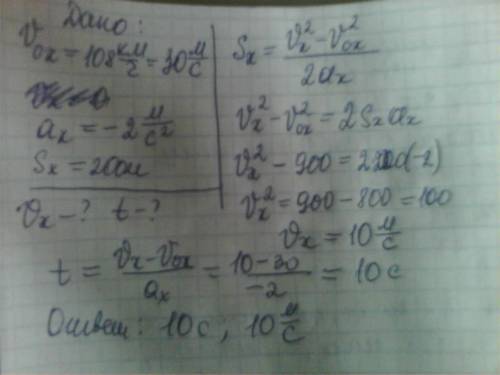 Дано:
v₀ₓ = 108 км/г = 30 м/с
aₓ = -2 м/с²
Sₓ = 200м
vₓ - ? t - ?
Sₓ = (vₓ² - v₀ₓ²)/2aₓ
vₓ² - v₀ₓ² = 2Sₓaₓ
vₓ² - 900 = 2·200(-2)
vₓ² = 900 - 800 = 100
vₓ = 10 м/с
t = (vₓ - v₀ₓ)/aₓ = (10 - 30)/-2 = 10 с
Ответ: 10 с, 10 м/с